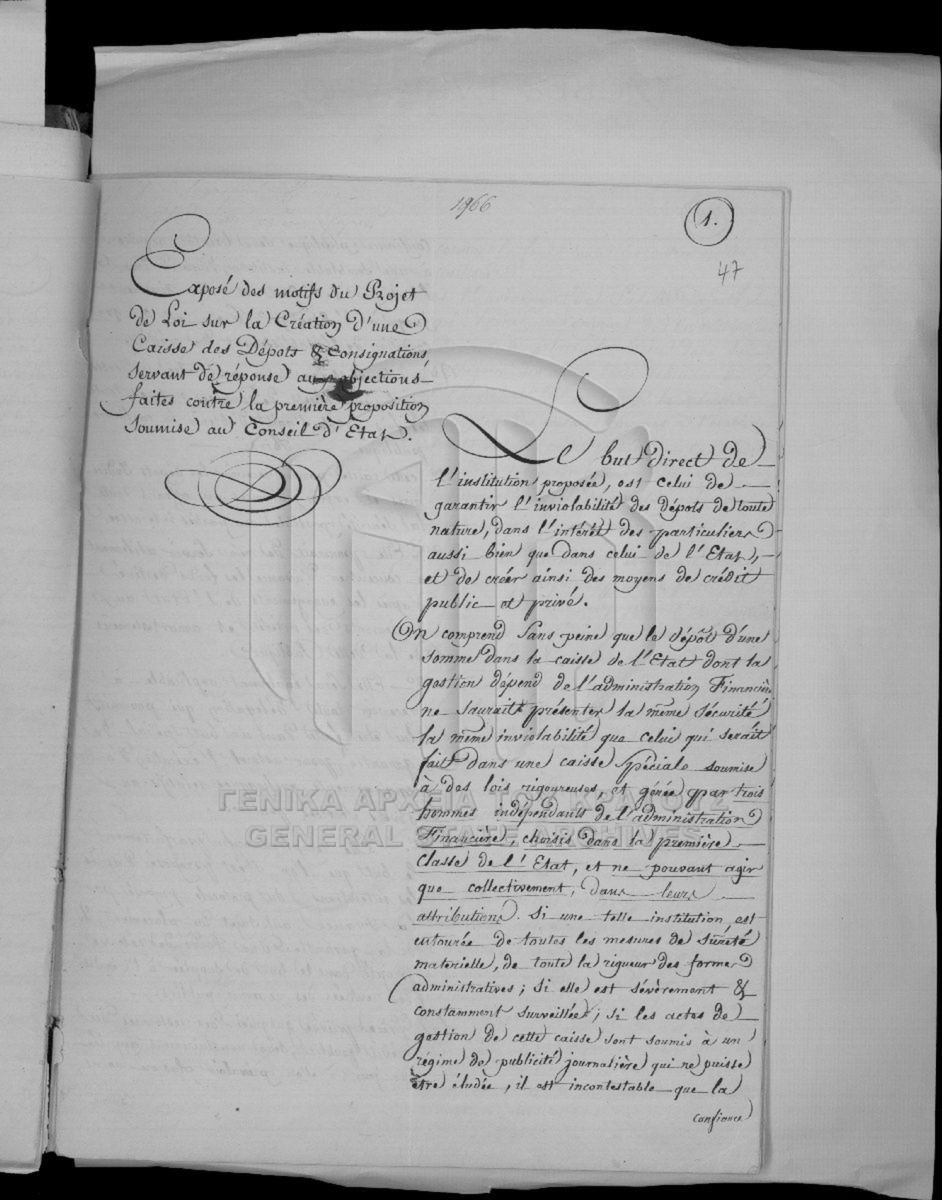 1966
1.
47
Exposé des motifs du Projet
de Loi sur la Création d'une
Caisse des Dépots & Consignations,
servant de réponse aux objections
faites contre la première proposition
soumise au Conseil d'Etat.
Le but direct de
l'institution proposée, est celui de
garantir l'inviolabilité des dépots de toute
nature, dans l'intérêt des particuliers
aussi bien que dans celui de l'Etat,
et de créer ainsi des moyens de crédit
public et privé.
On comprend sans peine que le dépôt d'une
somme dans la caisse de l'Etat dont la
gestion dépend de l'administration Financière
ne saurait présenter la même sécurité
la même inviolabilité que celui qui serait
fait dans une caisse spéciale soumise
à des lois rigoureuses, et gérée par trois
hommes indépendants de l'administration
Financière, choisis dans la première
classe de l'Etat, et ne pouvant agir
que collectivement, dans leurs
attributions. Si une telle institution est
entourée de toutes les mesures de sûreté
materielle, de toute la rigueur des formes
administratives; si elle est sévèrement &
constamment surveillée; si les actes de
gestion de cette caisse sont soumis à un
régime de publicité journalière qui ne puisse
être éludée, il est incontestable que la
confiance
ΓΕΝΙΚΑ ΑΡΧΕΙΑ ΤΟΥ ΚΡΑΤΟΥΣ
GENERAL STATE ARCHIVES